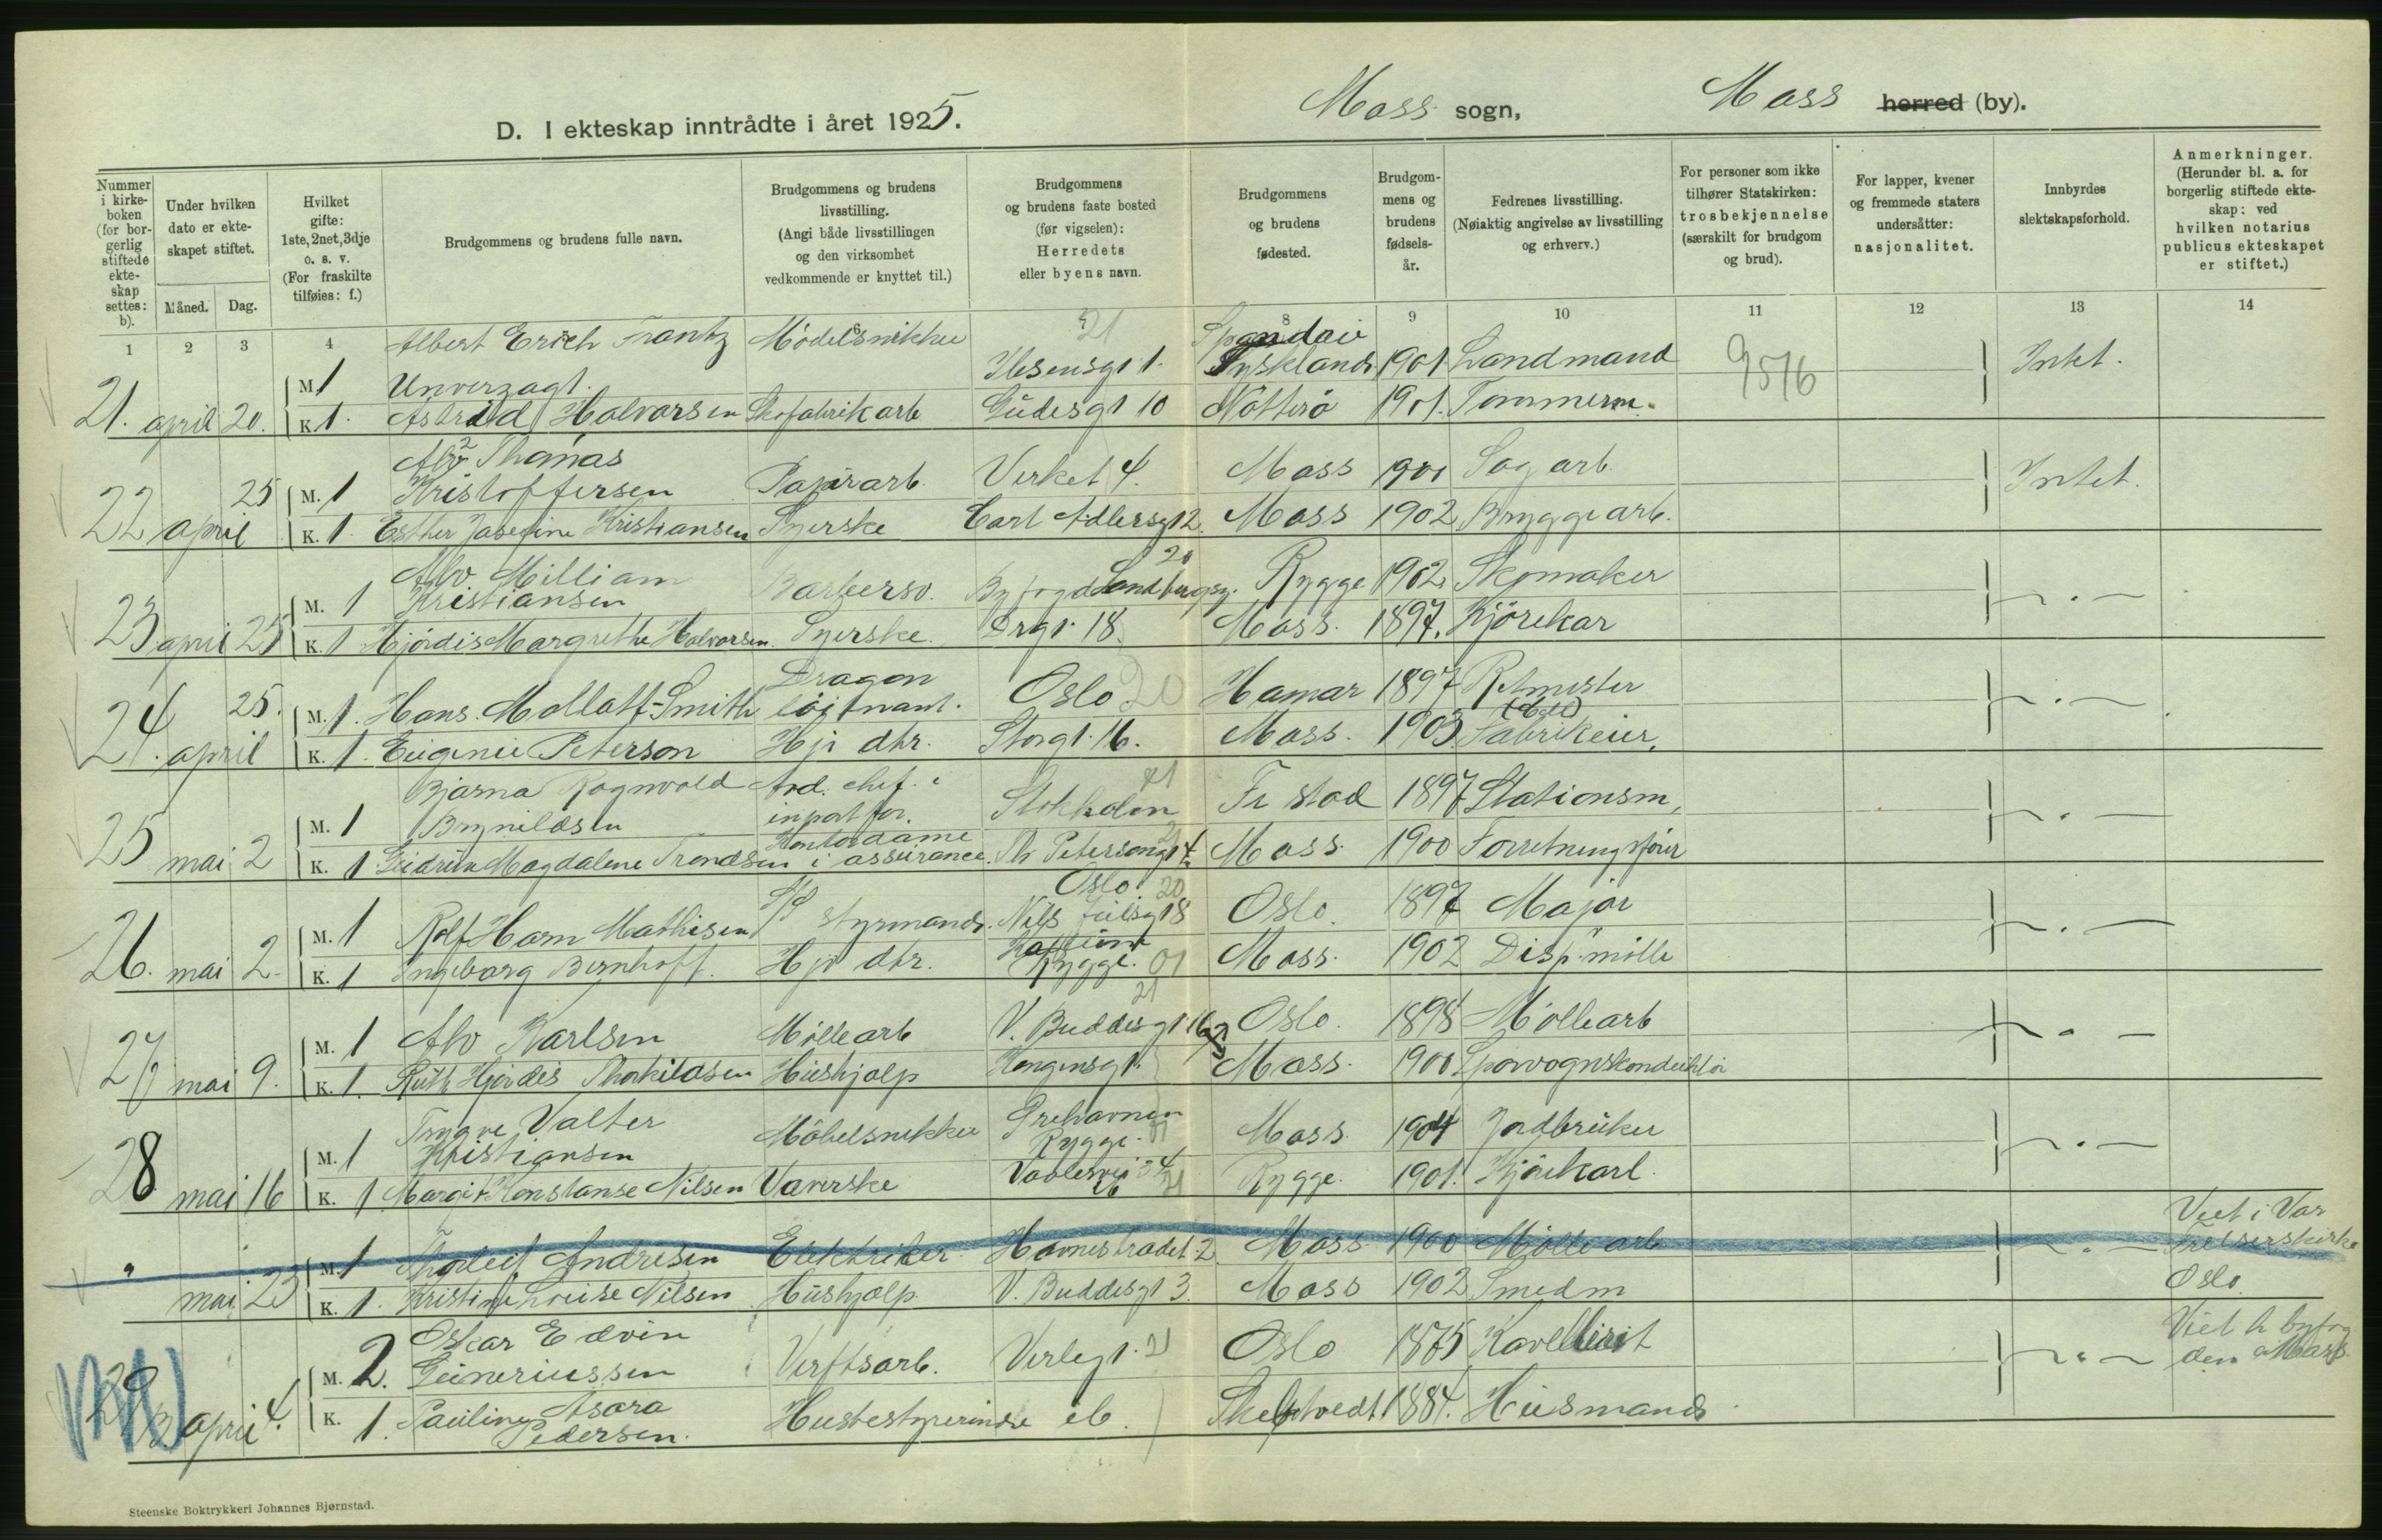 D. I ekteskap inntrådte i året 1925.
Moss sogn,
Moss herred (by).
Nummer i kirke-boken (for bor-gerlig stiftede ekte-skap settes: b).
Under hvilken dato er ekte-skapet stiftet.
Måned. Dag.
Hvilket gifte: 1ste, 2net, 3dje o. s. v. (For fraskilte tilføies: f.)
Brudgommens og brudens fulle navn.
Brudgommens og brudens livsstilling. (Angi både livsstillingen og den virksomhet vedkommende er knyttet til.)
Brudgommens og brudens faste bosted (før vigselen): Herredets eller byens navn.
Brudgommens og brudens fødested.
Brudgom-mens og brudens fødsels-år.
Fedrenes livsstilling. (Nøiaktig angivelse av livsstilling og erhverv.)
For personer som ikke tilhører Statskirken: trosbekjennelse (særskilt for brudgom og brud).
For lapper, kvener og fremmede staters undersåtter: nasjonalitet.
Innbyrdes slektskapsforhold.
Anmerkninger. (Herunder bl. a. for borgerlig stiftede ekte-skap: ved hvilken notarius publicus ekteskapet er stiftet.)
1 2 3 4 6 8 9 10 11 12 13 14
Albert Erich Frantz Mödelsnikker 21 Spandau
M 1 Unverzagt. Ibsensgt 1. Tyskland 1901. Landmand 9576 Intet.
21. april 20. K. 1. Astrid Halvorsen Skofabrikarb Gudesgt 10 Nötterö 1901. Tömmerm.
Alv Thomas
25 M. 1 Kristoffersen Papirarb. Verket 4. Moss 1901 Sagarb. Intet.
22 april K. 1 Esther Josefine Kristiansen Syerske Carl Adlersgt 2. Moss 1902 Bryggearb.
Alv. William 20
M. 1 Kristiansen Barbersv. Byfogd Sandbergsg. Rygge 1902 Skomaker
23 april 25 K. 1 Hjördis Margrethe Halvorsen. Syerske. Drgt 18. Moss. 1897. Kjörekar
Dragon
25. M. 1. Hans. Mollatt-Smith löjtnant. Oslo 20 Hamar 1897 Ritmester
24. april K. 1. Eugenie Peterson Hjv dtr. Storgt. 16. Moss. 1903 Fabrikeier.
Bjarna Ragnvald Avd. chef. i 21
M. 1 Brynildsen inportfor. Stokholm Fr stad 1897 Stationsm.
Kontordame
25 mai 2 K. 1 Gudrun Magdalene Trondsen i assurance. Th Petersonsgt 4. Moss 1900 Forretningsförer
Oslo 20
M. 1 Rolf Horn Mathisen S/S styrmand. Nils Juelsgt 8 Oslo. 1897 Major
26. mai 2. K. 1 Ingeborg Bernhoff. Hjv dtr. Rygge. 01 Moss. 1902 Disp. mölle
21
M. 1 Alv Karlsen Möllearb V. Buddesgt. 16 Oslo. 1898 Möllearb
27 mai 9. K. 1. Ruth Hjördis Thorkildsen Hushjelp Kongensgt. Moss. 1900 Sporvognskonduktör
Trygve Valter Grehavnen
M. 1 Kristiansen Möbelsnekker Rygge. 01 Moss. 1904 Jordbruker
28 mai 16 K. 1 Margit Konstanse Nilsen Væverske Vaalervei Rygge. 1901. Kjörekarl.
Viet i Vor
" M. 1 Thorleif Andresen Elektriker. Havnestrædet 2 Moss. 1900 Möllearb Frelserskirke
mai 23 K. 1. Kristine Louise Nilsen Hushjelp. V. Buddesgt 3. Moss 1902 Smedm Oslo.
Oskar Edvin
M. 2. Guneriussen Verftsarb. Verlegt. 21 Oslo 1875
29 april 4. K. 1. Pauline Asora Pedersen. Husbestyrerinde ib. Skeptvedt 1884. Husmand
Steenske Boktrykkeri Johannes Bjørnstad.